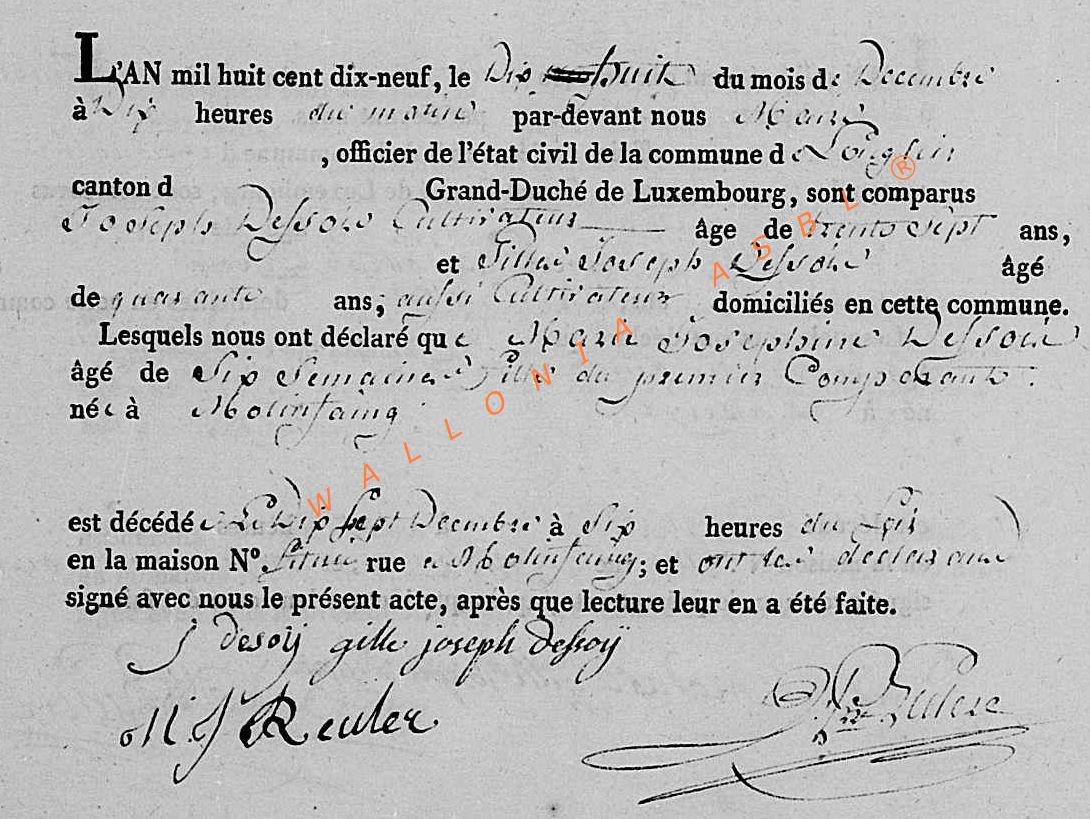 L'AN mil huit cent dix-neuf, le Dix huit du mois de Decembre
à Dix heures du matin par-devant nous Maire
, officier de l'état civil de la commune de Longlier
canton d Grand-Duché de Luxembourg, sont comparus
Joseph Dessoie Cultivateur âge de trente sept ans,
et Gille Joseph Dessoie âgé
de quarante ans; aussi Cultivateur domiciliés en cette commune.
Lesquels nous ont déclaré que Marie Josephine Dessoie
âgé de Six Semaines fille du premier Comparant
née à Molinfaing
est décédée Le Dix Sept Decembre à Six heures du Soir
en la maison N.º située rue a Molinfaing; et ont les declarans
signé avec nous le présent acte, après que lecture leur en a été faite.
J desoÿ gille joseph dessoÿ
N J Reuler
WALLONIA ASBL ®